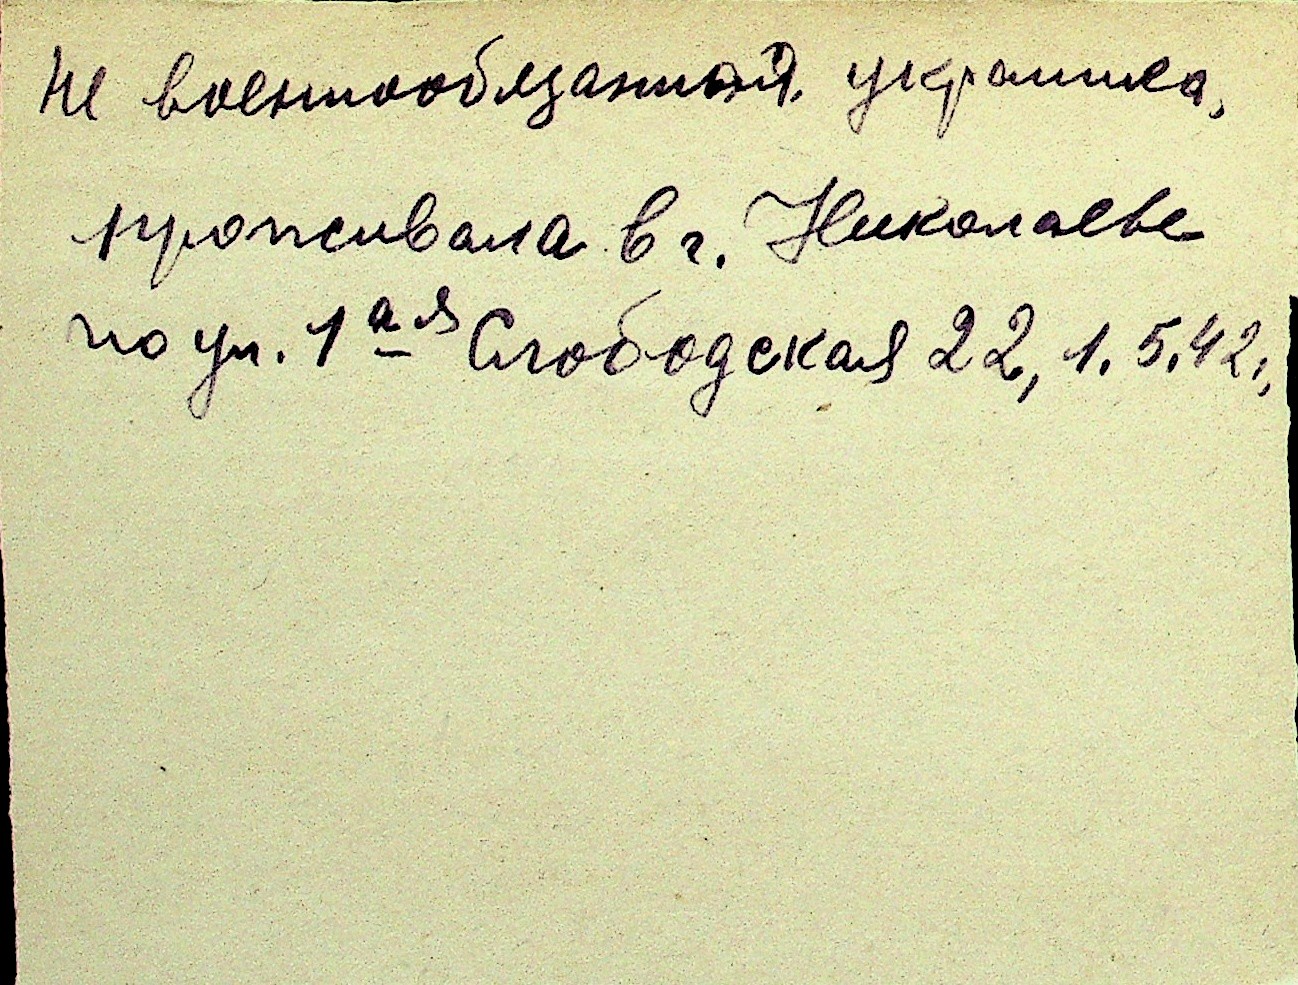 не военнообязанная. украинка,
проживала в г. Николаеве
по ул. 1ая Слободская 22, 1.5.42.,